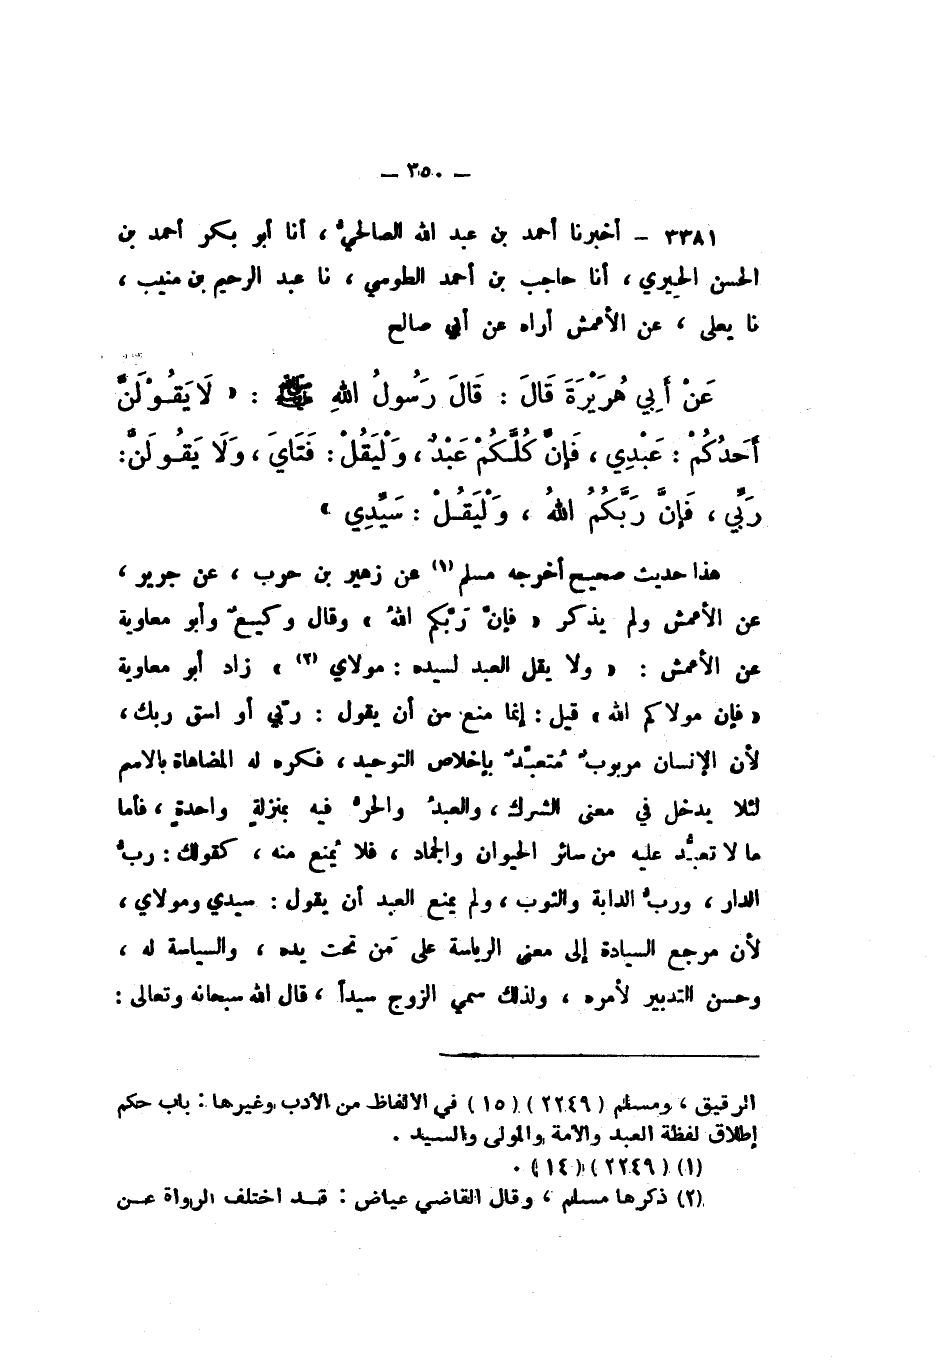 — ٣٥٠ —
٣٣٨١ — أخبرنا أحمد بن عبد الله الصالحيُّ ، أنا أبو بكر أحمد بن
الحسن الحيري ، أنا حاجب بن أحمد الطوسي ، نا عبد الرحيم بن منيب ،
نا يعلى ، عن الأعمش أراه عن أبي صالح
عَنْ أَبِي هُرَيْرَةَ قَالَ : قَالَ رَسُولُ اللهِ ﷺ : « لَا يَقُوْلَنَّ
أَحَدُكُمْ : عَبْدِي ، فَإِنَّ كُلَّكُمْ عَبْدٌ ، وَلْيَقُلْ : فَتَايَ ، وَلَا يَقُولَنَّ :
رَبِّي ، فَإِنَّ رَبَّكُمُ اللهُ ، وَلْيَقُلْ : سَيِّدِي »
هذا حديث صحيح أخرجه مسلم (١) عن زهير بن حرب ، عن جرير ،
عن الأعمش ولم يذكر « فإنَّ رَبَّكم اللهُ » وقال وكيعٌ وأبو معاوية
عن الأعمش : « ولا يقل العبد لسيده : مولاي (٢) » زاد أبو معاوية
« فإن مولاكم الله » قيل : إنما منع من أن يقول : ربّي أو اسق ربك ،
لأن الإنسان مربوبٌ مُتعبَّدٌ بإخلاص التوحيد ، فكره له المضاهاة بالاسم
لئلا يدخل في معنى الشرك ، والعبدُ والحرُّ فيه بمنزلةٍ واحدةٍ ، فأما
ما لا تعبُّد عليه من سائر الحيوان والجماد ، فلا يُمنع منه ، كقولك : ربُّ
الدار ، وربُّ الدابة والثوب ، ولم يمنع العبد أن يقول : سيدي ومولاي ،
لأن مرجع السيادة إلى معنى الرياسة على مَن تحت يده ، والسياسة له ،
وحسن التدبير لأمره ، ولذلك سمي الزوج سيداً ، قال الله سبحانه وتعالى :
الرقيق ، ومسلم ( ٢٢٤٩ ) ( ١٥ ) في الالفاظ من الأدب وغيرها : باب حكم
إطلاق لفظة العبد والأمة والمولى والسيد .
(١) ( ٢٢٤٩ ) ( ١٤ ) .
(٢) ذكرها مسلم ، وقال القاضي عياض : قد اختلف الرواة عن